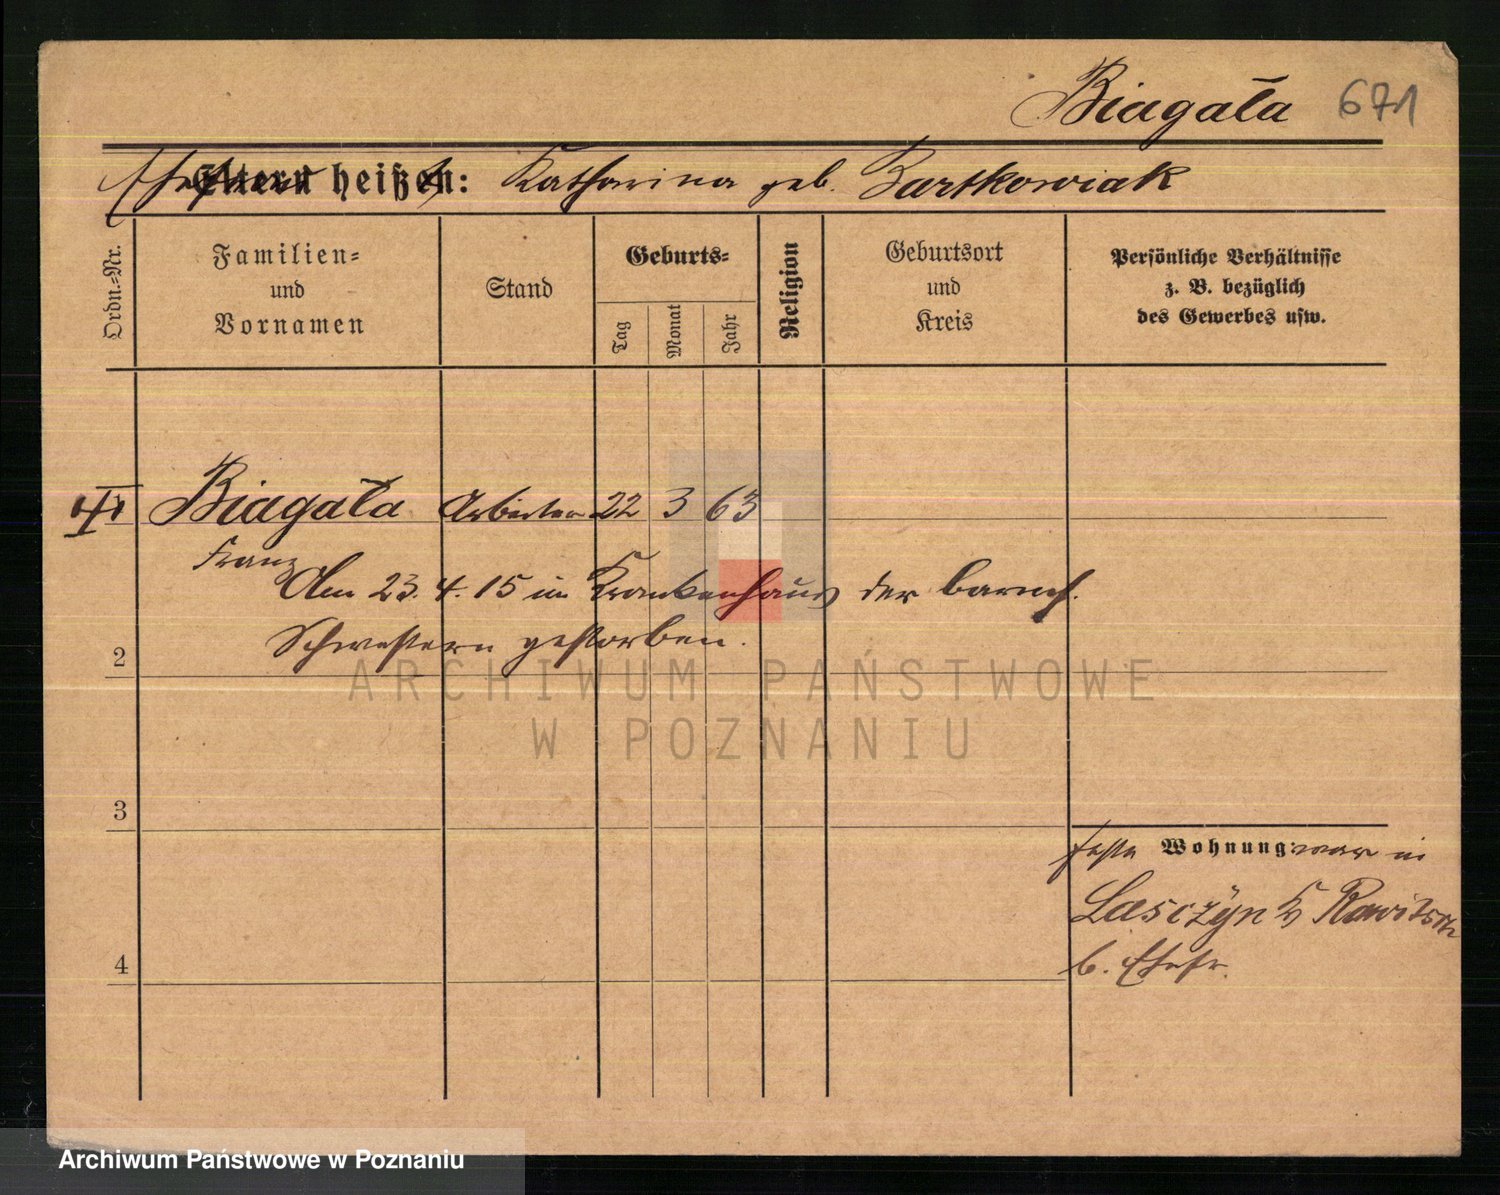 Biagała 671
Ehefrau heißt: Katharina geb. Bartkowiak
Ordn.=Nr.
Familien=
und
Vornamen
Stand
Geburts=
Tag
Monat
Jahr
Religion
Geburtsort
und
Kreis
Persönliche Verhältnisse
z. B. bezüglich
des Gewerbes usw.
Biagała Arbeiter 22 3 63
Franz
Am 23. 4. 15 im Krankenhaus der barmh.
Schwestern gestorben.
2
3
4
feste Wohnung war in
Lasczyn Kr Rawitsch
b. Ehefr.
ARCHIWUM PAŃSTWOWE
W POZNANIU
Archiwum Państwowe w Poznaniu